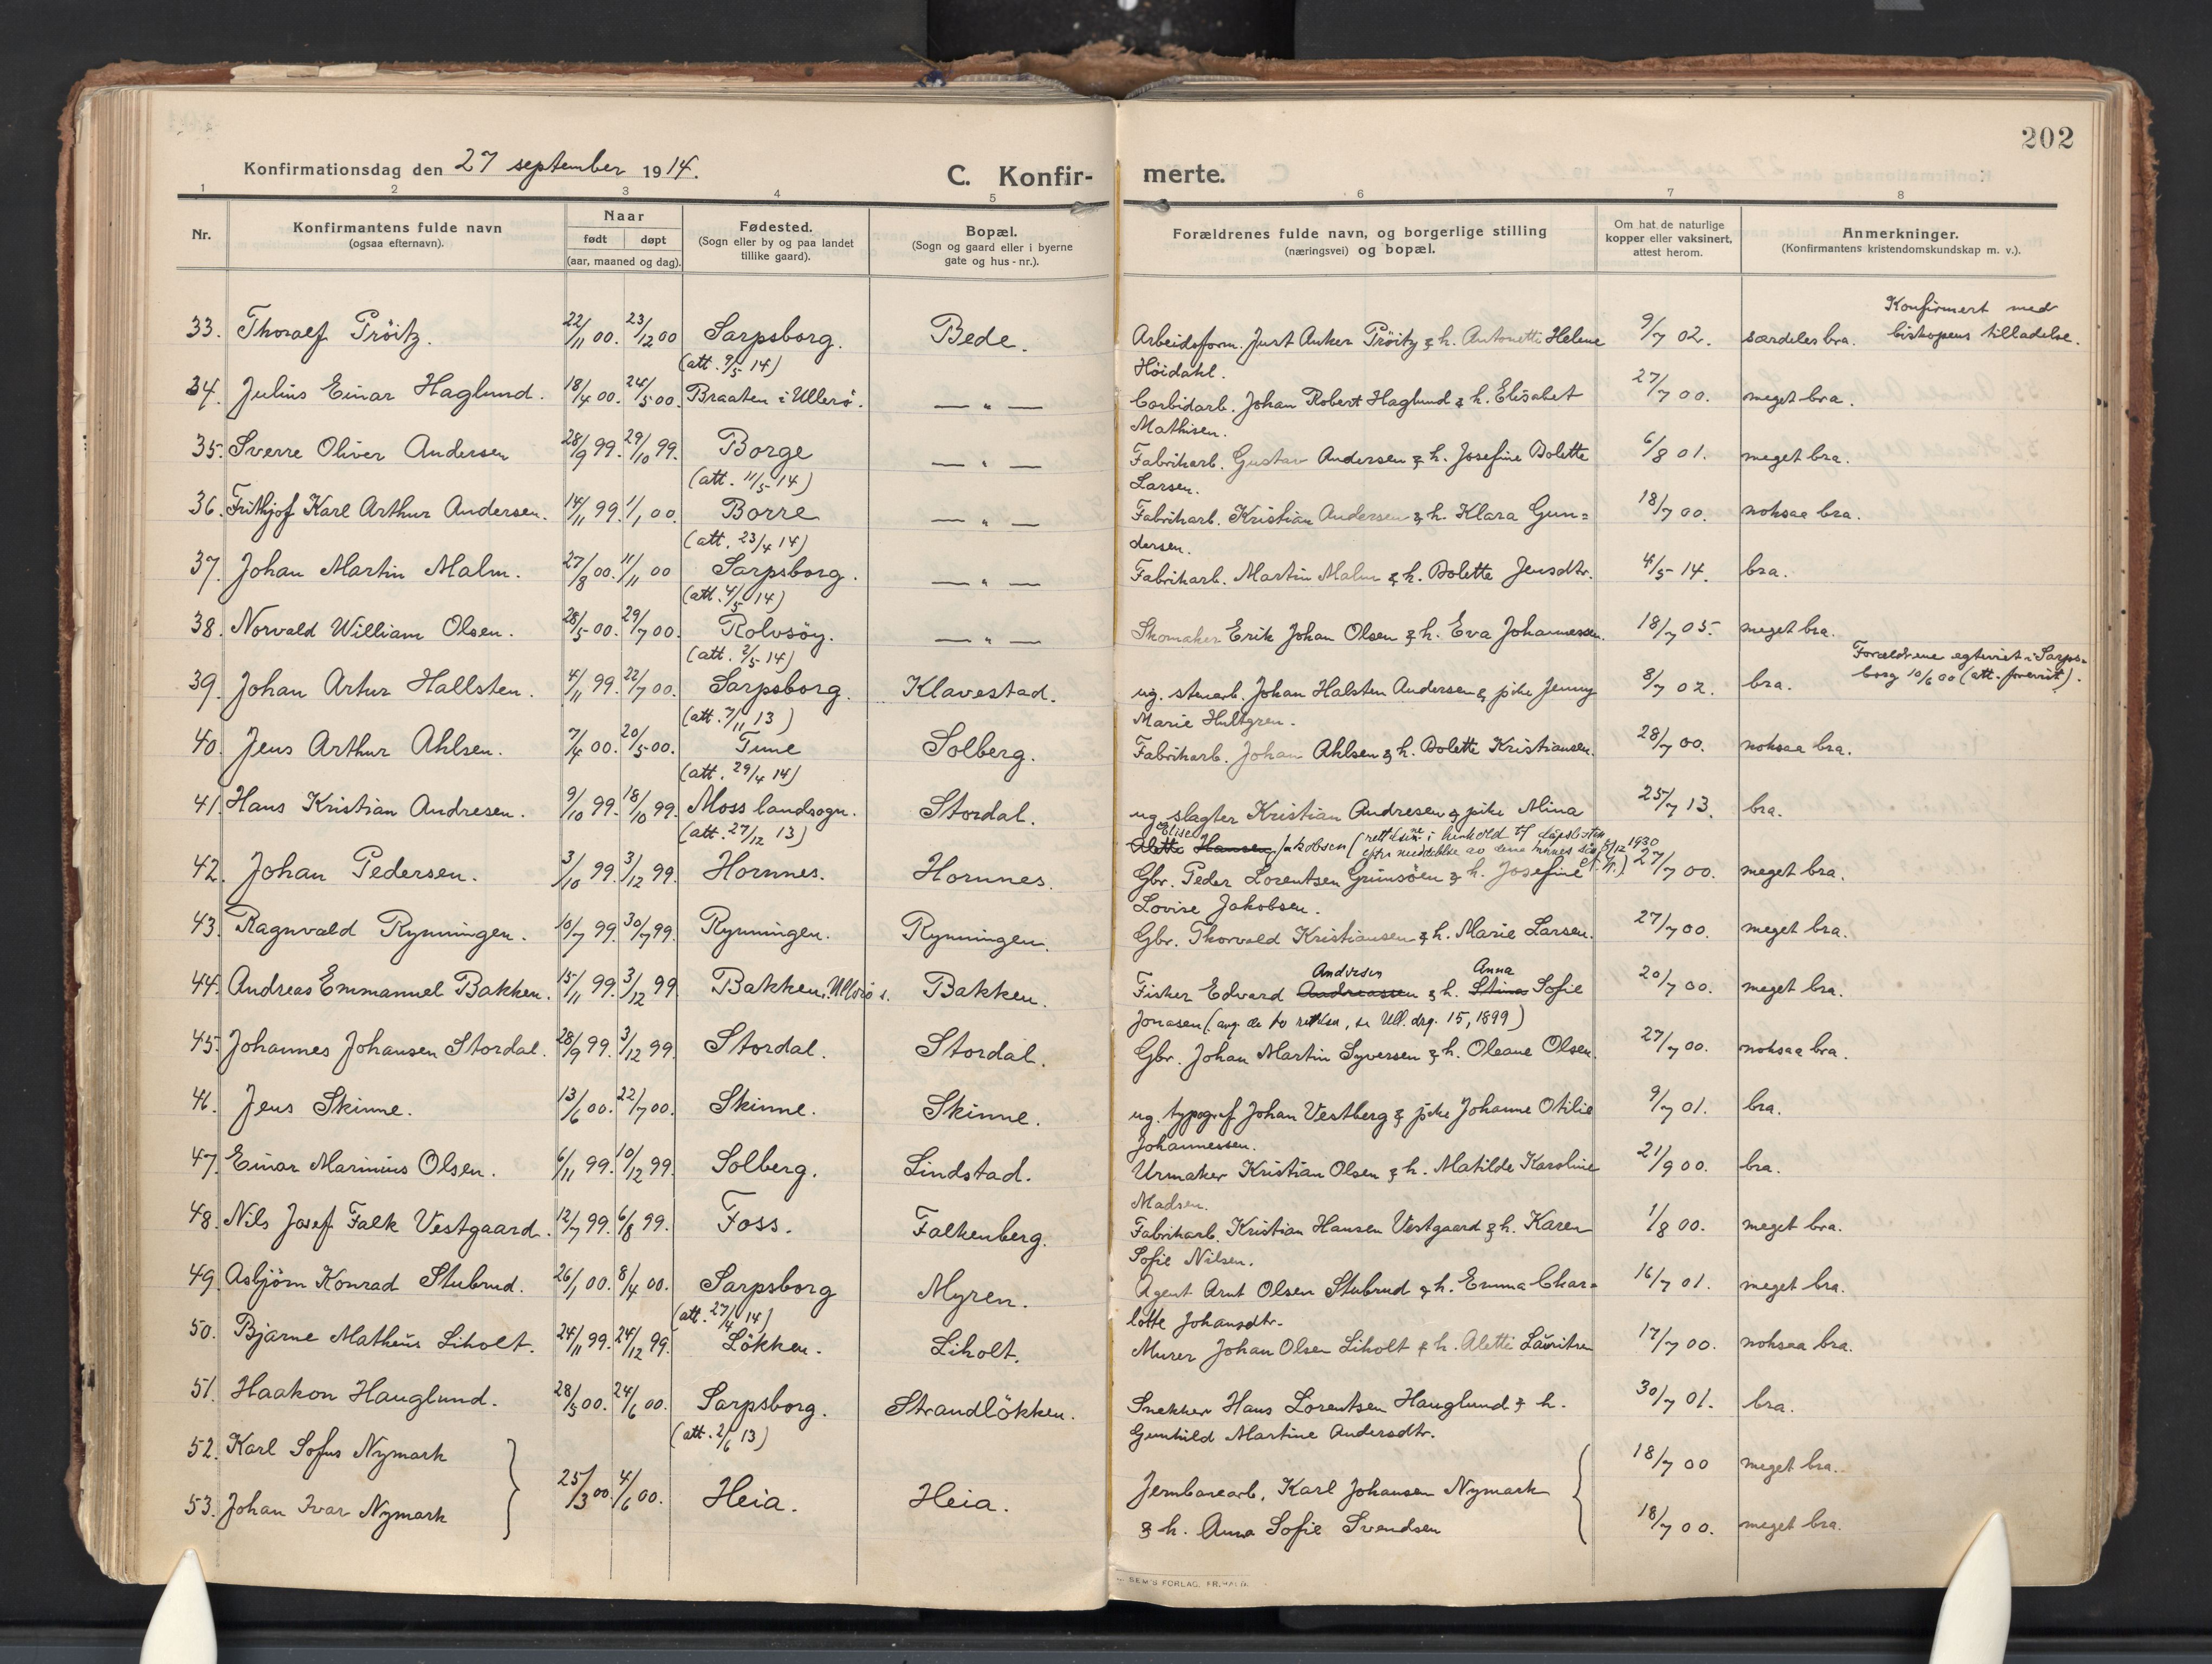 202
Konfirmationsdag den 27 september 1914.
C. Konfir- merte.
1 2 3 4 5 6 7 8
Nr.
Konfirmantens fulde navn
(ogsaa efternavn).
Naar
født døpt
(aar, maaned og dag).
Fødested.
(Sogn eller by og paa landet
tillike gaard).
Bopæl.
(Sogn og gaard eller i byerne
gate og hus-nr.).
Forældrenes fulde navn, og borgerlige stilling
(næringsvei) og bopæl.
Om hat de naturlige
kopper eller vaksinert,
attest herom.
Anmerkninger.
(Konfirmantens kristendomskundskap m. v.).
33. Thoralf Pröitz. 22/11 00. 23/12 00 Sarpsborg. Bede. Arbeidsform. Just Anker Pröitz & h. Antonette Helene 9/7 02. særdeles bra. Konfirmert med
biskopens tilladelse.
(att. 9/5 14) Höidahl.
34. Julius Einar Haglund. 18/4 00. 24/5 00. Braaten i Ullerö. — " — Carbidarb. Johan Robert Haglund & h. Elisabet 27/7 00. meget bra.
Mathisen.
35. Sverre Oliver Andersen 28/9 99. 29/10 99. Borge — " — Fabrikarb. Gustav Andersen & h. Josefine Bolette 6/8 01. meget bra.
(att. 11/5 14) Larsen.
36. Frithjof Karl Arthur Andersen. 14/11 99. 1/1 00. Borre — " — Fabrikarb. Kristian Andersen & h. Klara Gun= 18/7 00. noksaa bra.
(att. 23/4 14) dersen.
37. Johan Martin Malm. 27/8 00. 11/11 00 Sarpsborg. — " — Fabrikarb. Martin Malm & h. Bolette Jensdtr. 4/5 14. bra.
(att. 4/5 14)
38. Norvald William Olsen. 28/5 00. 29/7 00. Rolvsöy. — " — Skomaker Erik Johan Olsen & h. Eva Johannessen. 18/7 05. meget bra.
(att. 2/5 14)
39. Johan Artur Hallsten. 4/11 99. 22/7 00. Sarpsborg. Klavestad. ug. stenarb. Johan Halsten Andersen & pike Jenny 8/7 02. bra. Forældrene egteviet i Sarps-
borg 10/6 00 (att. forevist).
(att. 7/11 13) Marie Hultgren.
40. Jens Arthur Ahlsen. 7/4 00. 20/5 00. Tune Solberg. Fabrikarb. Johan Ahlsen & h. Bolette Kristiansen. 28/7 00. noksaa bra.
(att. 29/4 14)
41. Hans Kristian Andresen. 9/10 99. 18/10 99. Moss landsogn. Stordal. ug. slagter Kristian Andresen & pike Alina 25/7 13. bra.
(att. 27/12 13) Elise
Alette Hansen Jakobsen (rettelsen i henhold til dåpslisten
efter meddelelse av 8/12 1930
42. Johan Pedersen. 3/10 99. 3/12 99. Hornnes. Hornnes. Gbr. Peder Lorentsen Grimsöen & h. Josefine 27/7 00. meget bra.
Lovise Jakobsen.
43. Ragnvald Rynningen. 10/7 99. 30/7 99. Rynningen. Rynningen. Gbr. Thorvald Kristiansen & h. Marie Larsen. 27/7 00. meget bra.
Andersen Anna
44. Andreas Emmanuel Bakken. 15/11 99. 3/12 99 Bakken, Ullerö s. Bakken. Fisker Edvard Andreassen & h. Stina Sofie 20/7 00. meget bra.
Jonasen (ang. de to rettelser, se Ull. dåp. 15, 1899)
45. Johannes Johansen Stordal. 28/9 99. 3/12 99. Stordal. Stordal. Gbr. Johan Martin Syversen & h. Oleane Olsen. 27/7 00. noksaa bra.
46. Jens Skinne. 13/6 00. 22/7 00. Skinne. Skinne. ug. typograf Johan Vestberg & pike Johanne Otilie 9/7 01. bra.
Johannessen.
47. Einar Marinius Olsen. 6/11 99. 10/12 99. Solberg. Lindstad. Urmaker Kristian Olsen & h. Matilde Karoline 21/9 00. bra.
Madsen.
48. Nils Josef Falk Vestgaard. 12/7 99. 6/8 99. Foss. Falkenberg. Fabrikarb. Kristian Hansen Vestgaard & h. Karen 1/8 00. meget bra.
Sofie Nilsen.
49. Asbjörn Konrad Stubrud. 26/1 00. 8/4 00. Sarpsborg Myren. Agent Arnt Olsen Stubrud & h. Emma Char= 16/7 01. meget bra.
(att. 27/4 14) lotte Johansdtr.
50. Bjarne Matheus Liholt. 24/11 99. 24/12 99. Lökken. Liholt. Murer Johan Olsen Liholt & h. Alette Lauritsen 17/7 00. noksaa bra.
51. Haakon Hauglund. 28/5 00. 24/6 00. Sarpsborg. Strandlökken. Snekker Hans Lorentsen Hauglund & h. 30/7 01. bra.
(att. 2/6 13) Gunhild Martine Andersdtr.
52. Karl Sofus Nymark 18/7 00 meget bra.
25/3 00. 4/6 00. Heia. Heia. Jernbanearb. Karl Johansen Nymark
53. Johan Ivar Nymark & h. Anna Sofie Svendsen 18/7 00. meget bra.
SEM'S FORLAG. FR.HALD.